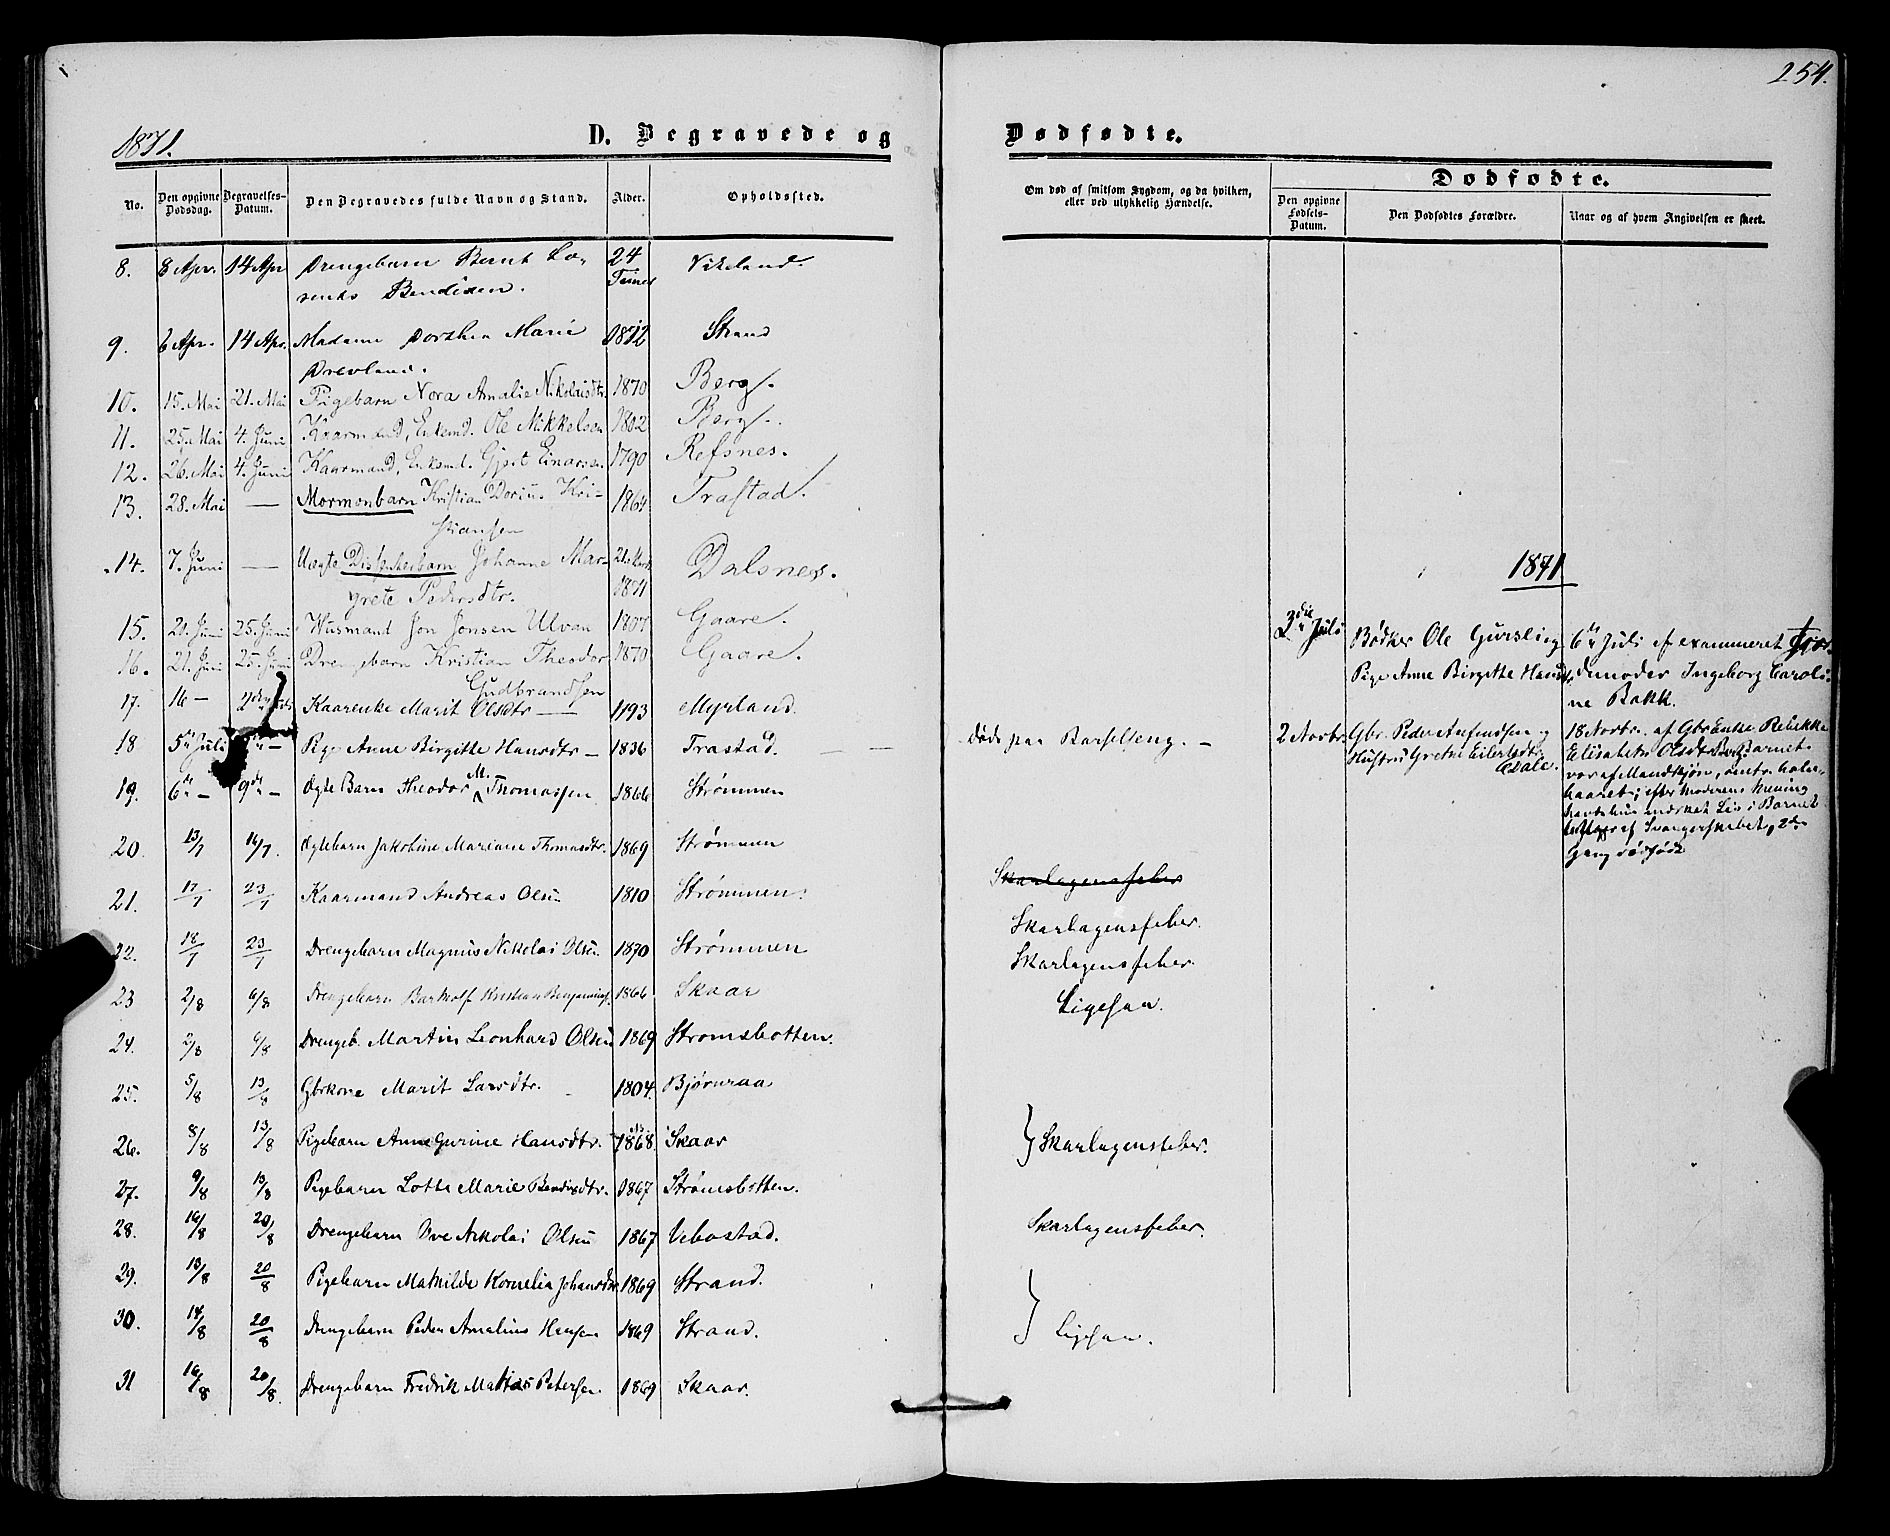 254.
1871.
D. Begravede og
Dødfødte.
No.
Den opgivne Dødsdag.
Begravelses-Datum.
Den Begravedes fulde Navn og Stand.
Alder.
Opholdssted.
Om død af smitsom Sygdom, og da hvilken,
eller ved ulykkelig Hændelse.
Dødfødte.
Den opgivne Fødsels-Datum.
Den Dødfødtes Forældre.
Naar og af hvem Angivelsen er skeet.
8. 8 Apr. 14 Apr Drengebarn Bernt Lo- 24 Timer Vikeland.
rents Bendixen.
9. 6 Apr. 14 Apr. Madame Dorthea Marie 1812 Strand
Drevland.
10. 15. Mai 21. Mai Pigebarn Nora Amalie Nikolaisdtr. 1870 Berg.
11. 25. Mai 4. Juni Kaarmand, Enkemd. Ole Mikkelsen 1802 Berg.
12. 26. Mai 4. Juni Kaarmand, Enkemd. Gjert Einarsen 1790 Refsnes.
13. 28. Mai — Mormonbarn Kristian Dorius Kri- 1864 Trastad.
stiansen
14. 7. Juni — Uægte Dissenterbarn Johanne Mar- 1871 Dalsnes.
grete Pedersdtr.
15. 21. Juni 25. Juni Husmand Jon Jonsen Ulvan 1807 Gaare.
16. 21. Juni 25. Juni Drengebarn Kristian Theodor 1870 Gaare.
Gudbrandsen
17. 16 — Kaarenke Marit Olsdtr — 1793 Myrland.
18 5te Juli — Pige Anne Birgitte Hansdtr — 1836 Trastad. — — Døde paa Barselseng. —
19. 6te — 9de — Ægte Barn Theodor M. Thomassen 1866 Strømmen
20. 13/7 16/7. Ægtebarn Jakobine Mariane Thomasdtr. 1869 Strømmen
Skarlagensfeber
21. 17/7 23/7 Kaarmand Andreas Olsen 1810 Strømmen.
Skarlagensfeber.
22. 18/7 23/7 Drengebarn Magnus Nikolai Olsen. 1870 Strømmen Skarlagensfeber.
23 2/8 6/8 Drengebarn Bartholf Kristian Benjamins. 1866 Skaar Ligesaa.
24. 2/8 6/8 Drengeb. Martin Leonhard Olsen 1869 Stromsbotten.
25. 5/8 13/8 Gbrkone Marit Larsdtr. 1804. Bjørnraa
26. 8/8 13/8 Pigebarn Anne Gurine Hansdtr. 1868. Skaar } Skarlagensfeber.
27. 9/8 13/8 Pigebarn Lotte Marie Bendixdtr. 1867 Strømsbotten.
28. 16/8 20/8 Drengebarn Ove Nikolai Olsen 1867 Vebostad. Skarlagensfeber.
29. 13/8 20/8 Pigebarn Mathilde Kornelia Johansdtr. 1869 Strand.
30. 14/8 20/8 Drengebarn Peder Amalius Hansen 1869 Strand. } Ligesaa.
31 16/8 20/8. Drengebarn Fredrik Mathias Petersen. 1869 Skaar.
1871
3die Juli
Bødker Ole Gursling
Pige Anne Birgitte Hansdtr
6te Juli af examineret Jor-
demoder Ingeborg Caroli-
ne Bakk.
2 Novbr.
Gbr. Peder Amundsen og
Hustru Grethe Eilertsdtr
Dale.
18 Novbr. af Gbr Enke Rebekka
Elisabeth Olsdtr Barnet
var af Mandkjøn,
haaret; efter Moderens Mening
Liv i Barnet
af Svangerskabet, 2de
Gang dødfødt